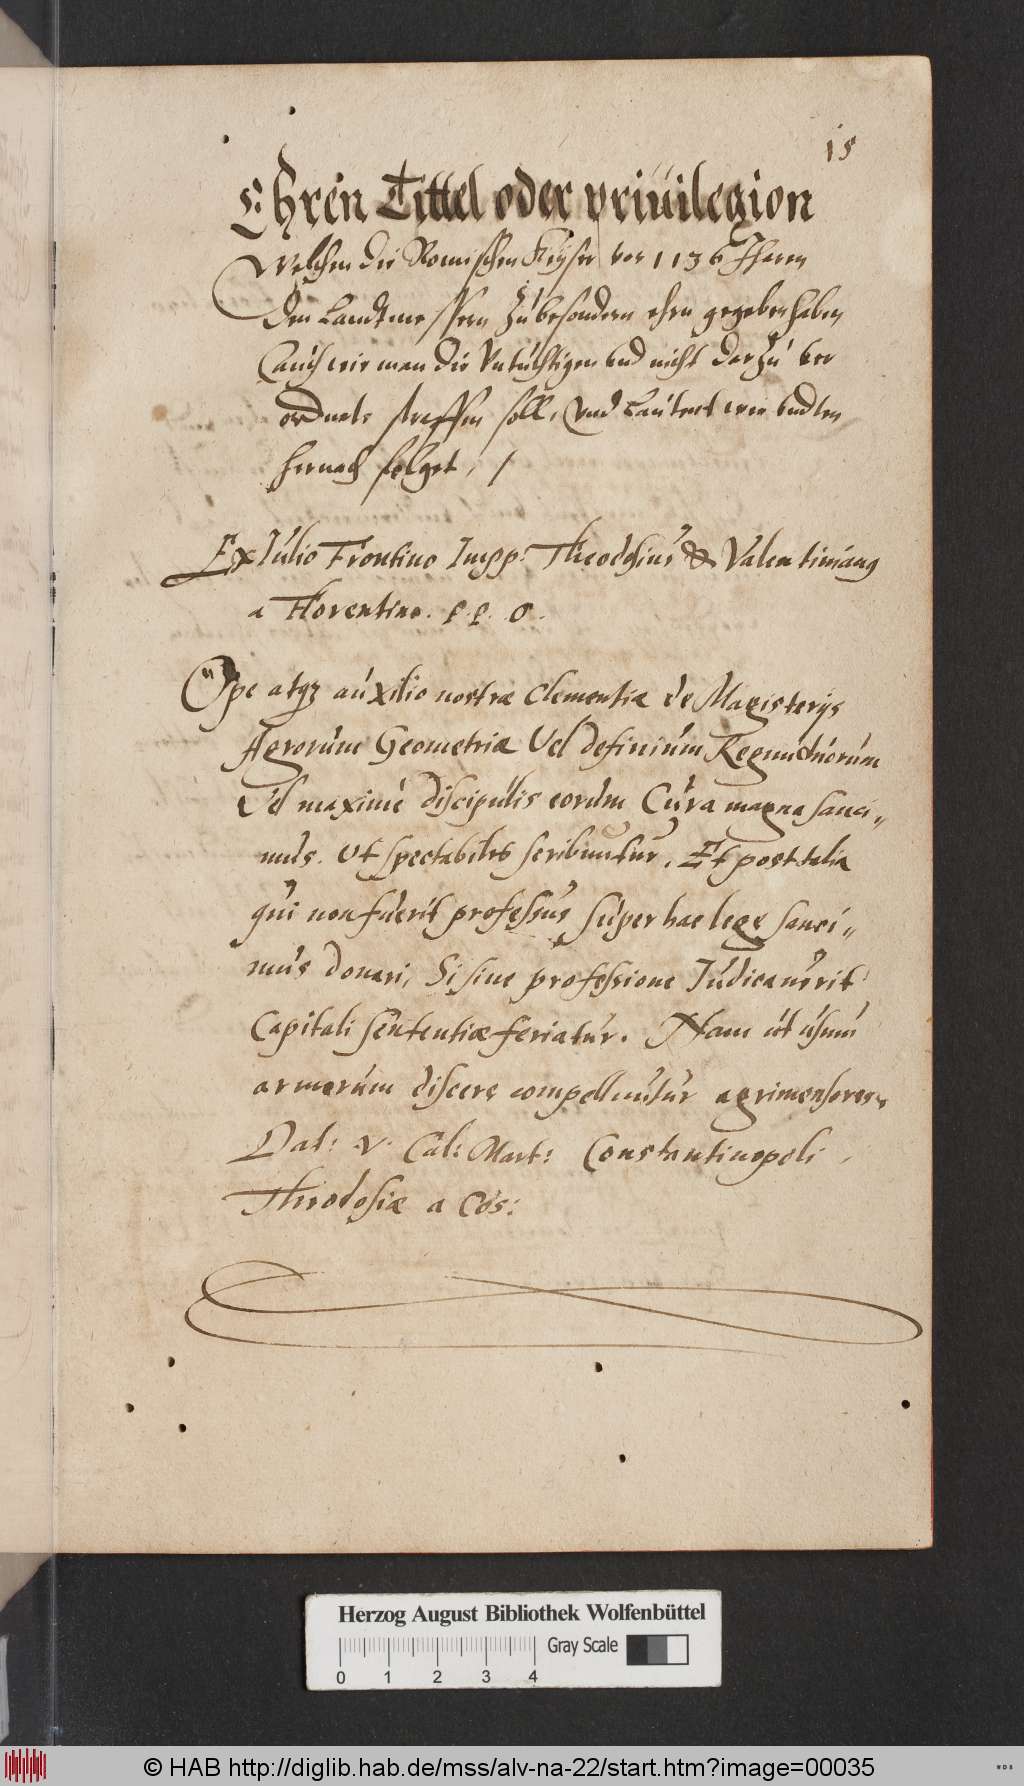 15
Ehren Tittel oder priuilegion
Welchen die Romischen Keyser vor 1136 Jharen
den Landtmessern zu besondern ehren gegeben haben
auch wie man die Vntuchtigen vnd nicht darzu ver
ordnete straffen soll, Vnd Lautert wie vndten
hernach folget, /
Ex Julio Frontino Impp: Theodosius & Valentinianus
a Florentino. P. P. O.
Ope atqz auxilio nostræ Clementiæ de Magisterijs
Agrorum Geometriæ Vel definium Regundnorum
Vel maximé discipulis eorum Cura magna sanci„
mus. Vt spectabiles scribuntur. Et post talia
qui non fuerit professus super hac lege sanci„
mus donari, Si sine professione Judicauerit
Capitali sententiæ feriatur. Nam ut usum
armorum discere compelluntur agrimensores,
Dat: V. Cal: Mart: Constantinopoli,
Theodosiæ a Cos:
Herzog August Bibliothek Wolfenbüttel
Gray Scale
0 1 2 3 4
© HAB http://diglib.hab.de/mss/alv-na-22/start.htm?image=00035